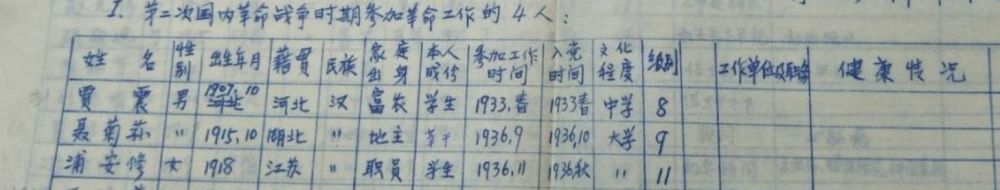 I. 第二次国内革命战争时期参加革命工作的4人:
姓名 性别 出生年月 籍贯 民族 家庭出身 本人成份 参加工作时间 入党时间 文化程度 级别 工作单位及职务 健康情况
贾震 男 1909.10 河北 汉 富农 学生 1933,春 1933春 中学 8
聂菊荪 " 1915,10 湖北 " 地主 1936,9 1936,10 大学 9
浦安修 女 1918 江苏 " 职员 学生 1936,11 1936秋 " 11